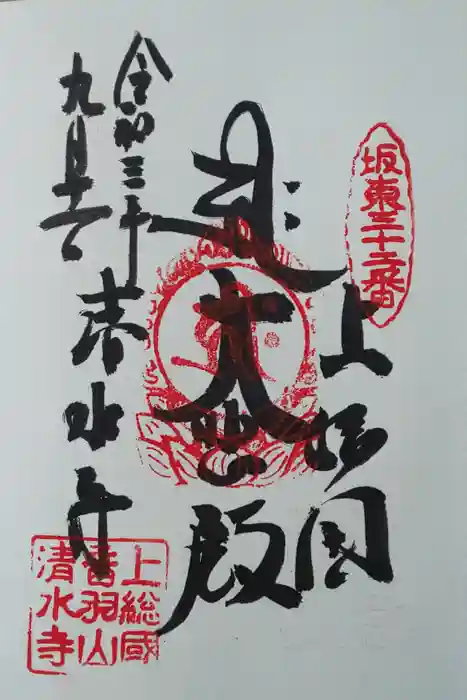 坂東三十二番
上総国
大悲殿
清水寺
令和三年
九月十二
上総國
音羽山
清水寺